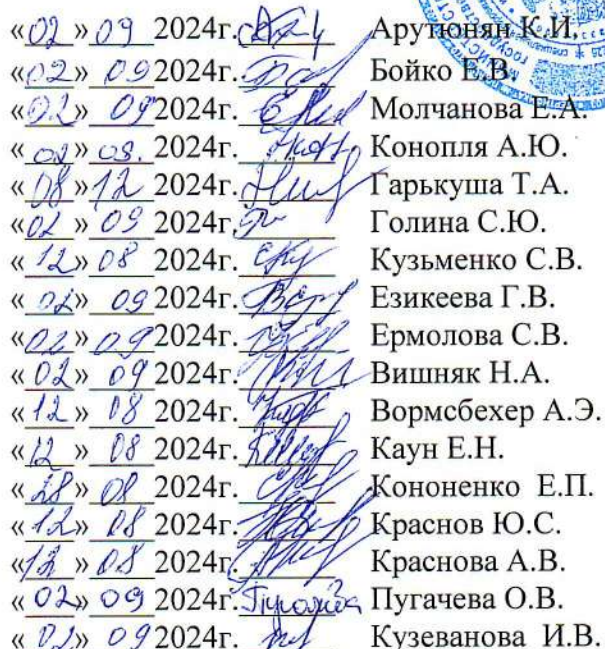 «02» 09 2024г. Арутюнян К.И.
«02» 09 2024г. Бойко Е.В.
«02» 09 2024г. Молчанова Е.А.
«02» 09. 2024г. Конопля А.Ю.
«08» 12 2024г. Гарькуша Т.А.
«02» 09 2024г. Голина С.Ю.
«12» 08 2024г. Кузьменко С.В.
«02» 09 2024г. Езикеева Г.В.
«02» 09 2024г. Ермолова С.В.
«02» 09 2024г. Вишняк Н.А.
«12» 08 2024г. Вормсбехер А.Э.
«12» 08 2024г. Каун Е.Н.
«28» 08 2024г. Кононенко Е.П.
«12» 08 2024г. Краснов Ю.С.
«12» 08 2024г. Краснова А.В.
«02» 09 2024г. Пугачева О.В.
«02» 09 2024г. Кузеванова И.В.